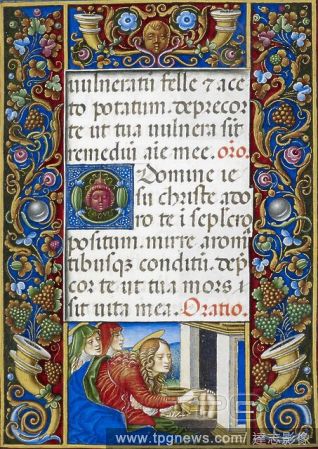 uulneratū felle ⁊ ace
to potatum. deprecor
te ut tua uulnera sit
remediū aīe mee. oro.
Domine ie
su christe ado
ro te ī seplcro
positum. mirre aroma
tibusqꝫ conditū. dep̄
cor te ut tua mors
sit uita mea. Oratio.
www.tpgnews.com / 達志影像